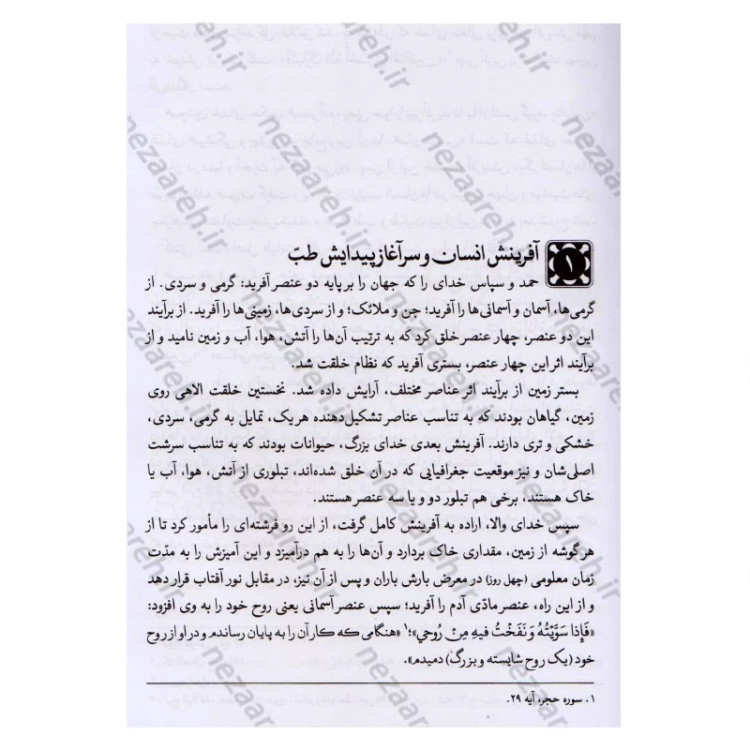 ۱
آفرینش انسان و سرآغاز پیدایش طبّ
حمد و سپاس خدای را که جهان را بر پایه دو عنصر آفرید: گرمی و سردی. از
گرمی‌ها، آسمان و آسمانی‌ها را آفرید؛ جن و ملائک؛ و از سردی‌ها، زمینی‌ها را آفرید. از برآیند
این دو عنصر، چهار عنصر خلق کرد که به ترتیب آن‌ها را آتش، هوا، آب و زمین نامید و از
برآیند اثر این چهار عنصر، بستری آفرید که نظام خلقت شد.
بستر زمین از برآیند اثر عناصر مختلف، آرایش داده شد. نخستین خلقت الاهی روی
زمین، گیاهان بودند که به تناسب عناصر تشکیل‌دهنده هر یک، تمایل به گرمی، سردی،
خشکی و تری دارند. آفرینش بعدی خدای بزرگ، حیوانات بودند که به تناسب سرشت
اصلی‌شان و نیز موقعیت جغرافیایی که در آن خلق شده‌اند، تبلوری از آتش، هوا، آب یا
خاک هستند، برخی هم تبلور دو و یا سه عنصر هستند.
سپس خدای والا، اراده به آفرینش کامل گرفت، از این رو فرشته‌ای را مأمور کرد تا از
هر گوشه از زمین، مقداری خاک بردارد و آن‌ها را به هم درآمیزد و این آمیزش را به مدّت
زمان معلومی (چهل روز) در معرض بارش باران و پس از آن نیز، در مقابل نور آفتاب قرار دهد
و از این راه، عنصر مادّی آدم را آفرید؛ سپس عنصر آسمانی یعنی روح خود را به وی افزود:
«فَإِذا سَوَّیْتُهُ وَ نَفَخْتُ فیهِ مِنْ رُوحي»؛۱ «هنگامی که کار آن را به پایان رساندم و در او از روح
خود (یک روح شایسته و بزرگ) دمیدم».
۱. سوره حجر، آیه ۲۹.
nezaareh.ir
nezaareh.ir
nezaareh.ir
nezaareh.ir
nezaareh.ir
nezaareh.ir
nezaareh.ir
nezaareh.ir